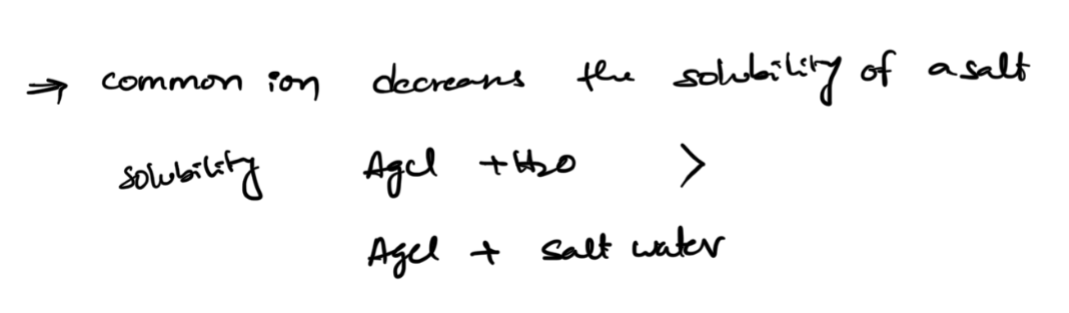 ⇒ common ion decreans the solubility of a salt
solubility Agcl + H2O >
Agcl + salt water